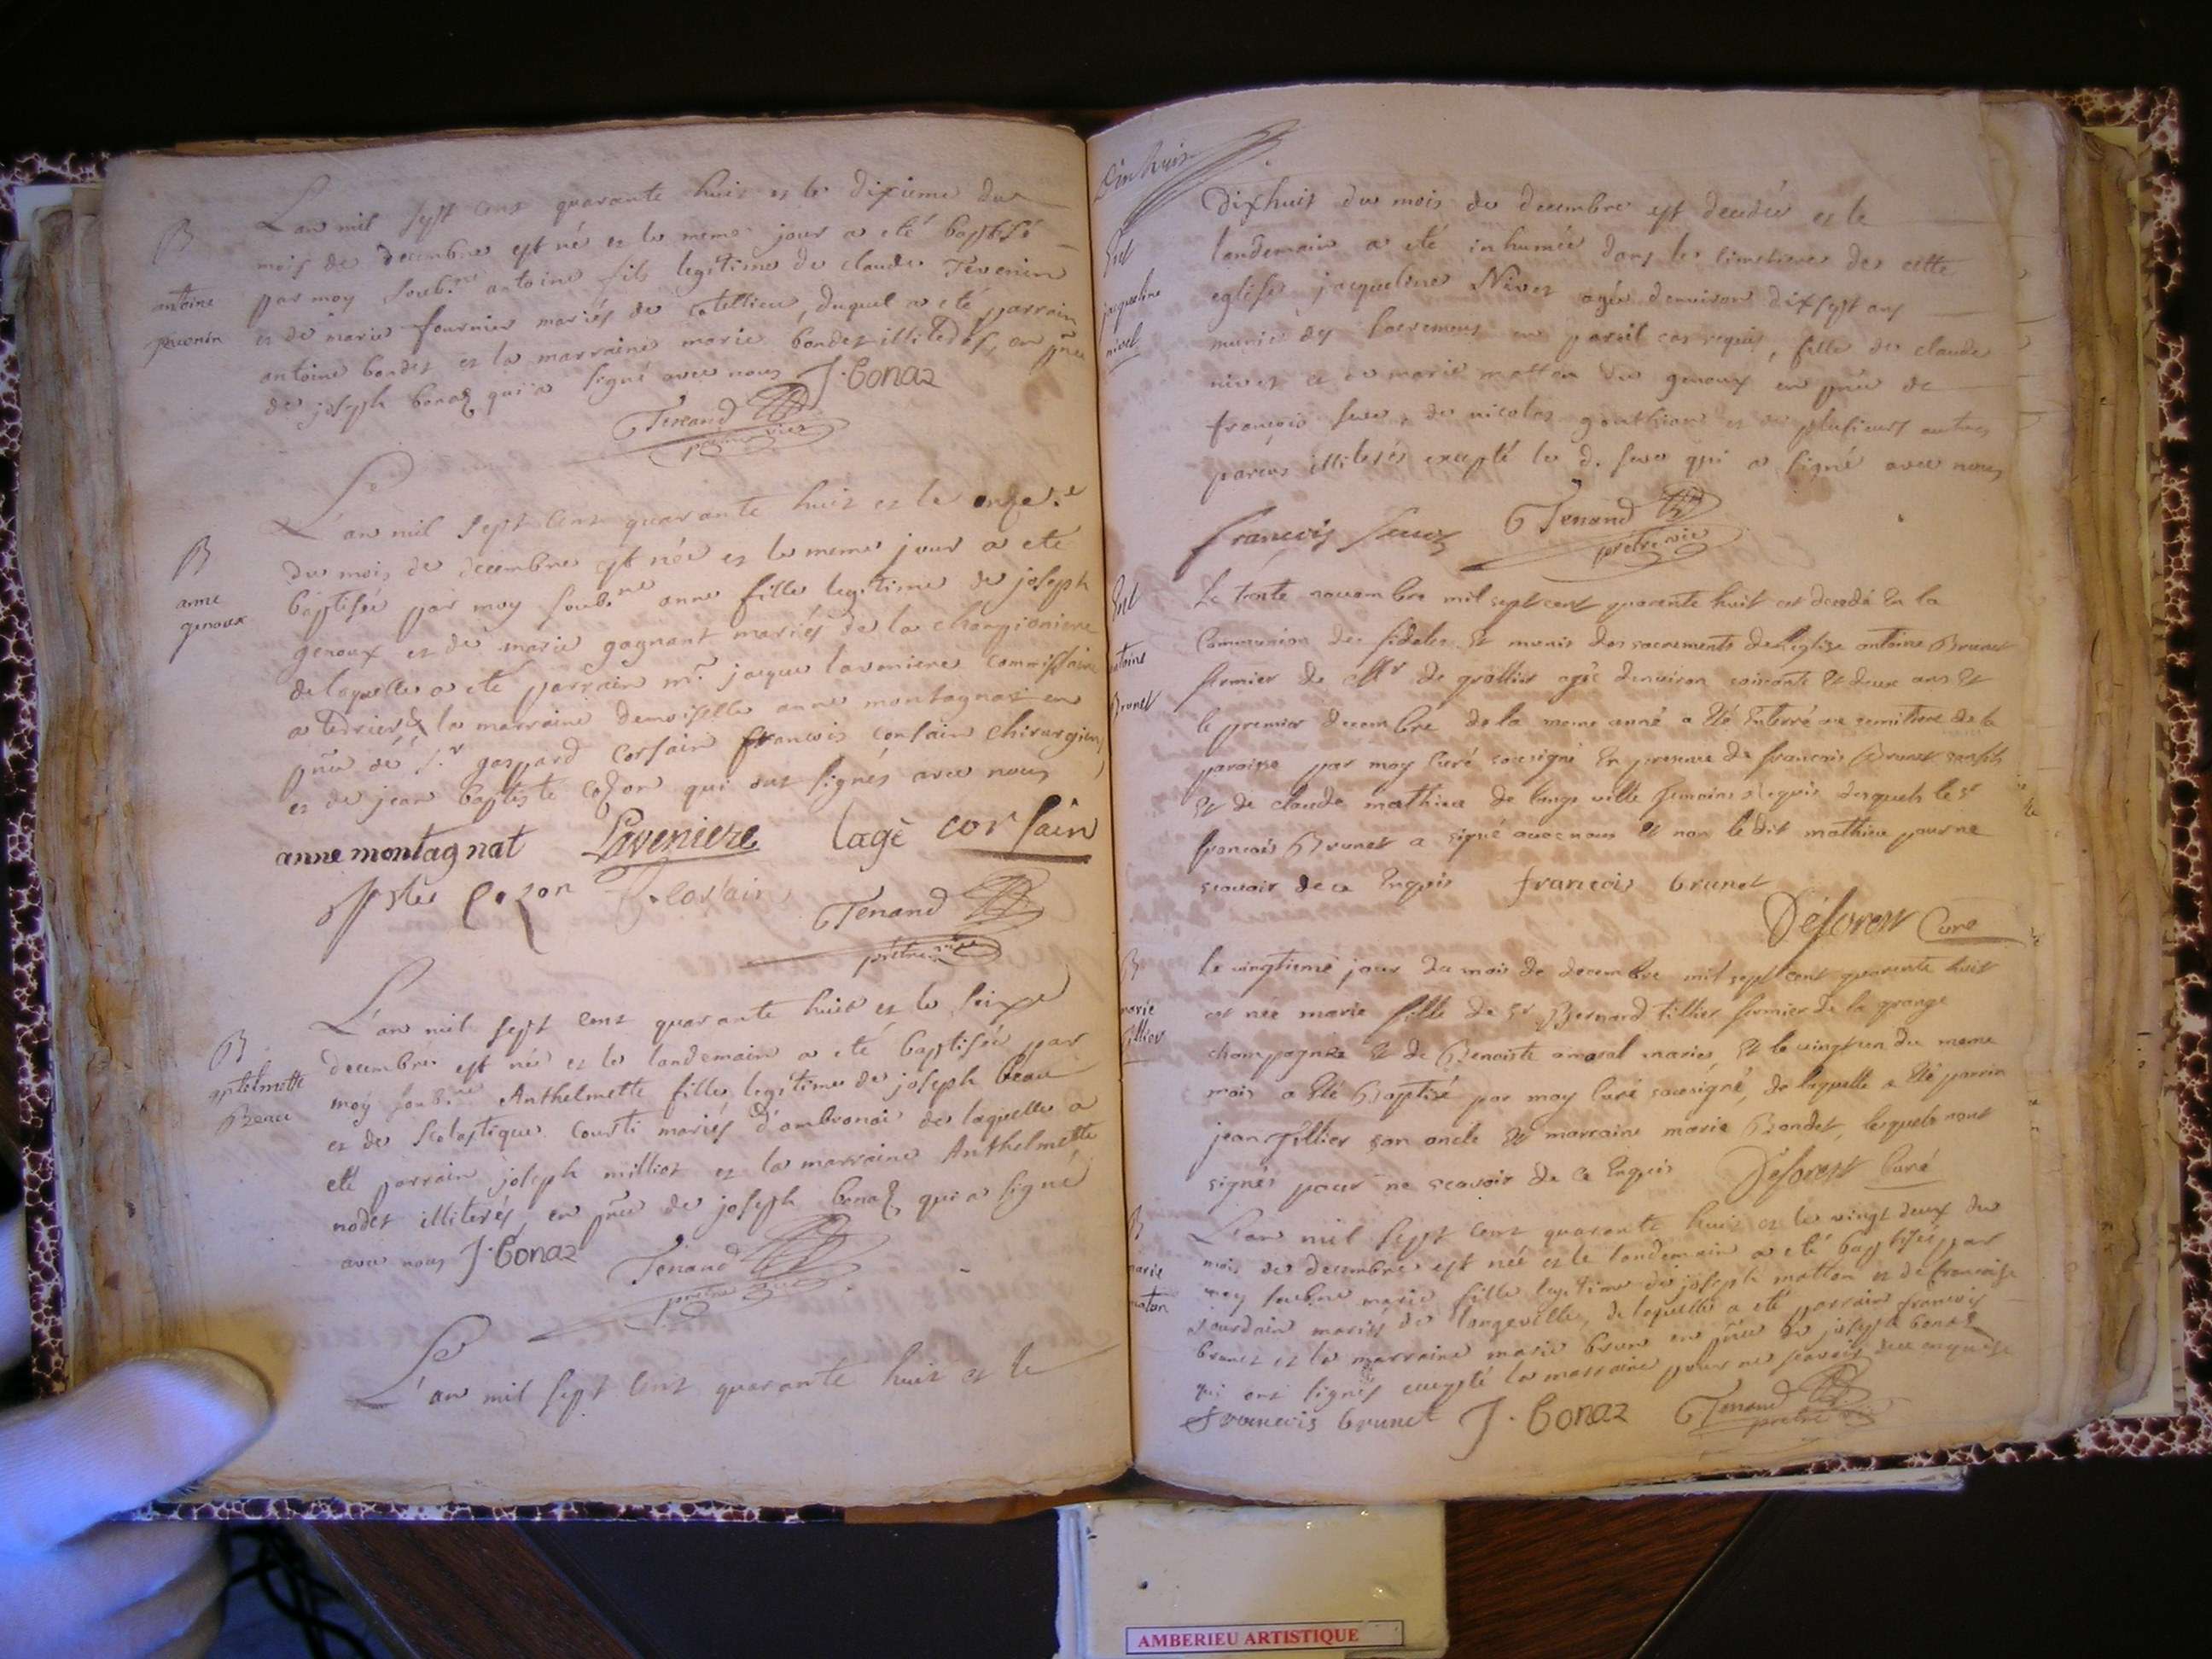 B
antoine
tevenin
L'an mil sept cent quarante huit et le dixieme du
mois de decembre est né et le meme jour a eté baptisé
par moy soub.né antoine fils legitime de claude Tevenin
et de marie fournier mariés de , duquel a eté parrain
antoine bondet et la marraine marie bondet illiterés, en pnce
de joseph bonaz qui a signé avec nous J. bonaz
Tenand
pretre vic
B
anne
genoux
L'an mil sept cent quarante huit et le onze.e
du mois de decembre est née et le meme jour a eté
baptisée par moy soub.né anne fille legitime de joseph
genoux et de marie gagnant mariés de la championiere
de laquelle a eté parrain m.e jacque laveniere commissaire
a terrier, la marraine demoiselle anne montagnat en
pnce de s.r gaspard corsain francois corsain chirurgien
et de jean baptiste cozon qui ont signés avec nous
anne montagnat Laveniere lagé corsain
cozon corsain
Tenand
pretre vic
B
antelmette
Beau
L'an mil sept cent quarante huit et le seize
decembre est né et le landemain a eté baptisée par
moy soub.né Anthelmette fille legitime de joseph beau
et de scolastique courti mariés d'ambronai de laquelle a
eté parrain joseph milliot et la marraine Anthelmette
nodet illiterés, en pnce de joseph bonaz qui a signé
avec nous J. bonaz
Tenand
pretre vic
L'an mil sept cent quarante huit et le
Ent
jacqueline
nivet
dixhuit du mois de decembre est decedée et le
landemain a eté inhumée dans le cimetiere de cette
eglise jacqueline Nivet agée d'environ dixsept ans
munie des sacremens en pareil cas requis, fille de claude
nivet et de marie matton de genoux en pnce de
françois , de nicolas gonthier et de plusieurs autres
parens illiterés excepté le d. qui a signé avec nous
francois
Tenand
pretre vic
Ent
antoine
Brunet
Le trente novembre mil sept cent quarente huit est decedé En la
Communion des fideles Et munis des sacrements de L'eglise antoine Brunet
fermier de Mr de grollier agé d'environ soixante Et deux ans Et
le premier decembre de la meme anné a Eté Enterré au cemitiere de la
paroisse par moy Curé soussigné En presence de francois Brunet son fils
Et de claude mathieu de longe ville temoins requis desquels le sr
francois Brunet a signé avec nous Et non le dit mathieu pour ne
scavoir de ce Enquis francois brunet
Déforest Curé
B
marie
tillier
Le vingtieme jour du mois de decembre mil sept cent quarente huit
est née marie fille de sr Bernard tillier fermier de la grange
champagnie Et de Benoiste amaral maries Et le vingt un du meme
mois a Eté Baptisé par moy Curé soussigné, de laquelle a Eté parrin
jean tillier son oncle Et marraine marie Bondet, lesquels n'ont
signés pour ne scavoir de ce Enquis Déforest Curé
B
marie
maton
L'an mil sept cent quarante huit et le vingt deux du
mois de decembre est née et le landemain a eté baptisée par
moy soub.né marie fille legitime de joseph matton et de francoise
jourdain mariés de longeville, de laquelle a eté parrain francois
brunet et la marraine marie brun en pnce de joseph bonaz
qui ont signés excepté la marraine pour ne scavoir de ce enquise
francois brunet J. bonaz Tenand
pretre vic
AMBERIEU ARTISTIQUE